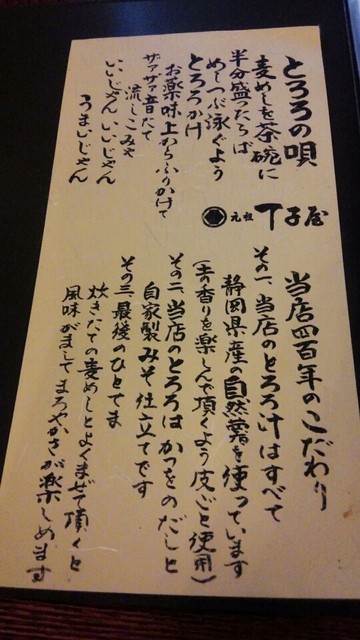 とろろの唄
麦めしを茶碗に
半分盛ったらば
めしつぶ泳ぐよう
とろろかけ
お薬味上からふりかけて
ザァザァ音たて
流しこみゃ
いいじゃん いいじゃん
うまいじゃん
元祖 丁子屋
当店四百年のこだわり
その一、当店のとろろ汁はすべて
静岡県産の自然薯を使っています
(土の香りを楽しんで頂くよう皮ごと使用)
その二、当店のとろろはかつをのだしと
自家製みそ仕立てです
その三、最後のひとてま
炊きたての麦めしとよくまぜて頂くと
風味がましてまろやかさが楽しめます